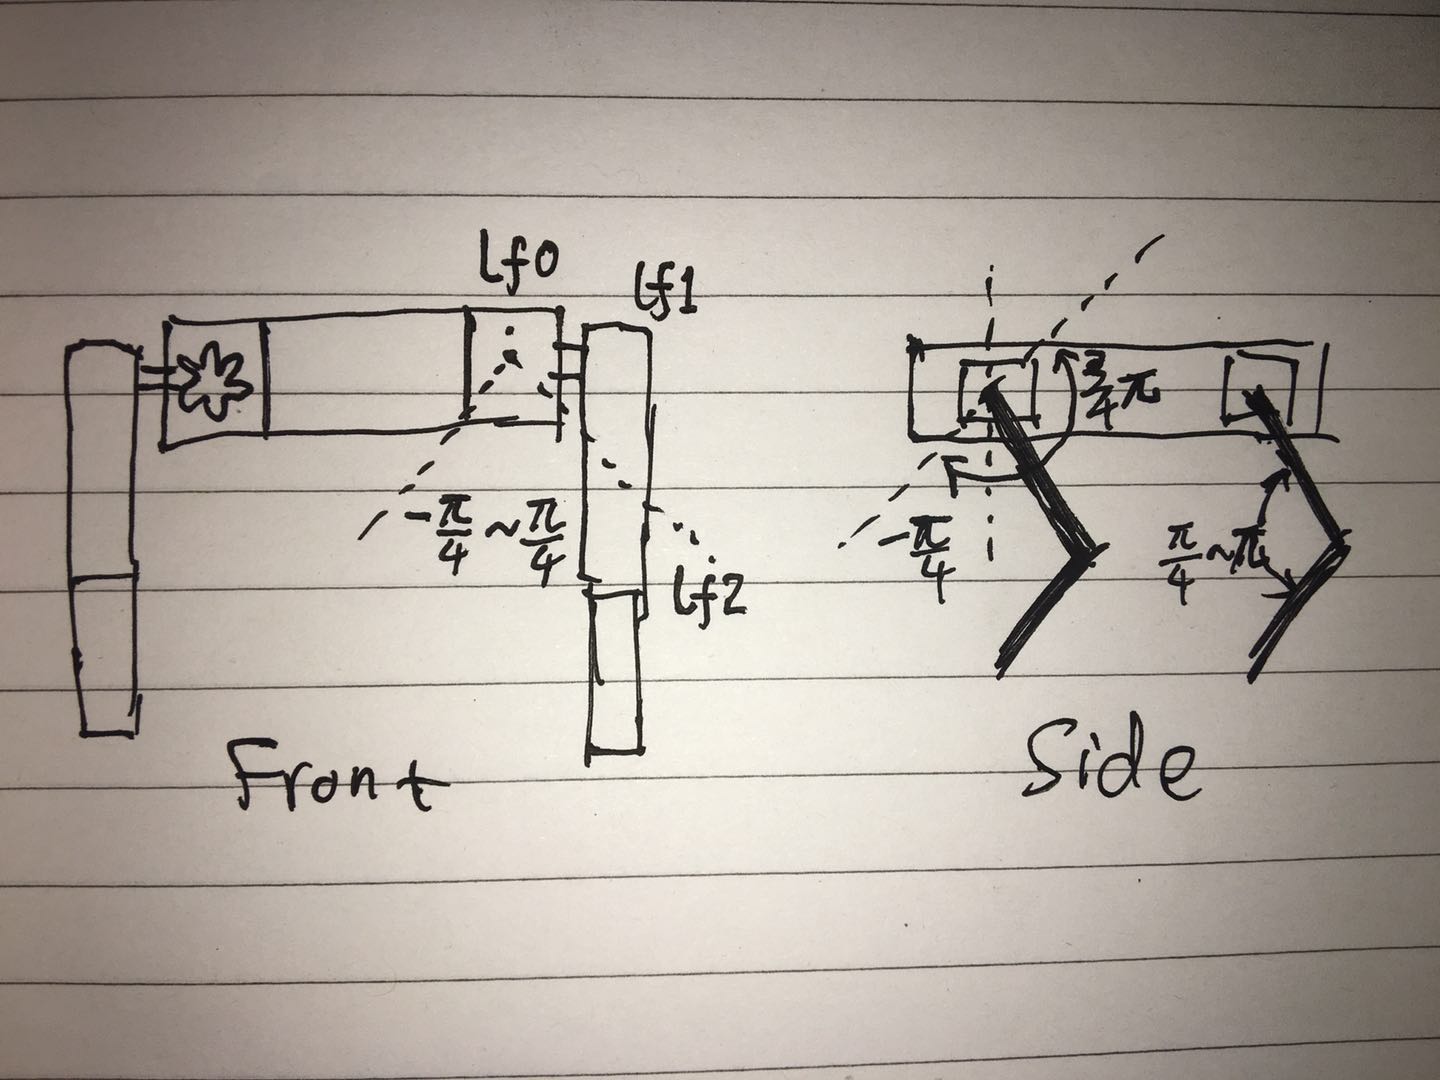 lf0
lf1
-π/4 ~ π/4
lf2
Front
3/4 π
-π/4
π/4 ~ π
Side